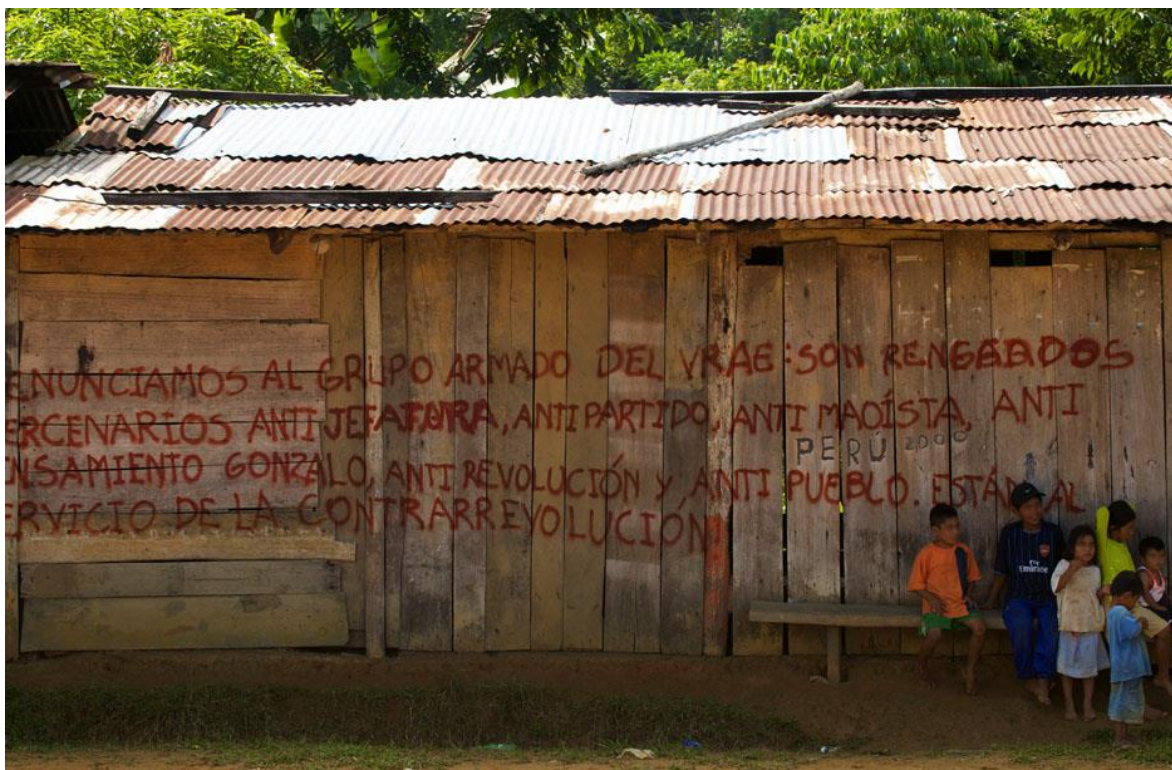 ENUNCIAMOS AL GRUPO ARMADO DEL VRAE: SON RENGEADOS
ERCENARIOS ANTI JEFATURA, ANTI PARTIDO, ANTI MAOÍSTA, ANTI
PERÚ 2000
ENSAMIENTO GONZALO, ANTI REVOLUCIÓN Y ANTI PUEBLO. ESTÁN AL
ERVICIO DE LA CONTRARREVOLUCIÓN!
Fly
Emirates